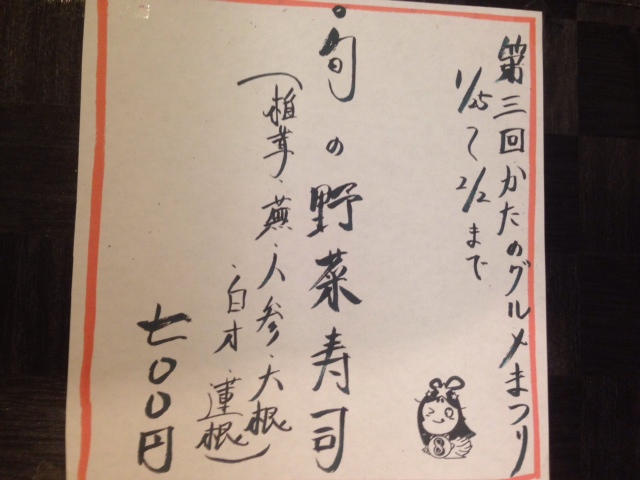 第三回かたのグルメまつり
1/25〜2/2まで
・旬の野菜寿司
(椎茸・蕪・人参・大根
・白才・蓮根)
七〇〇円
8